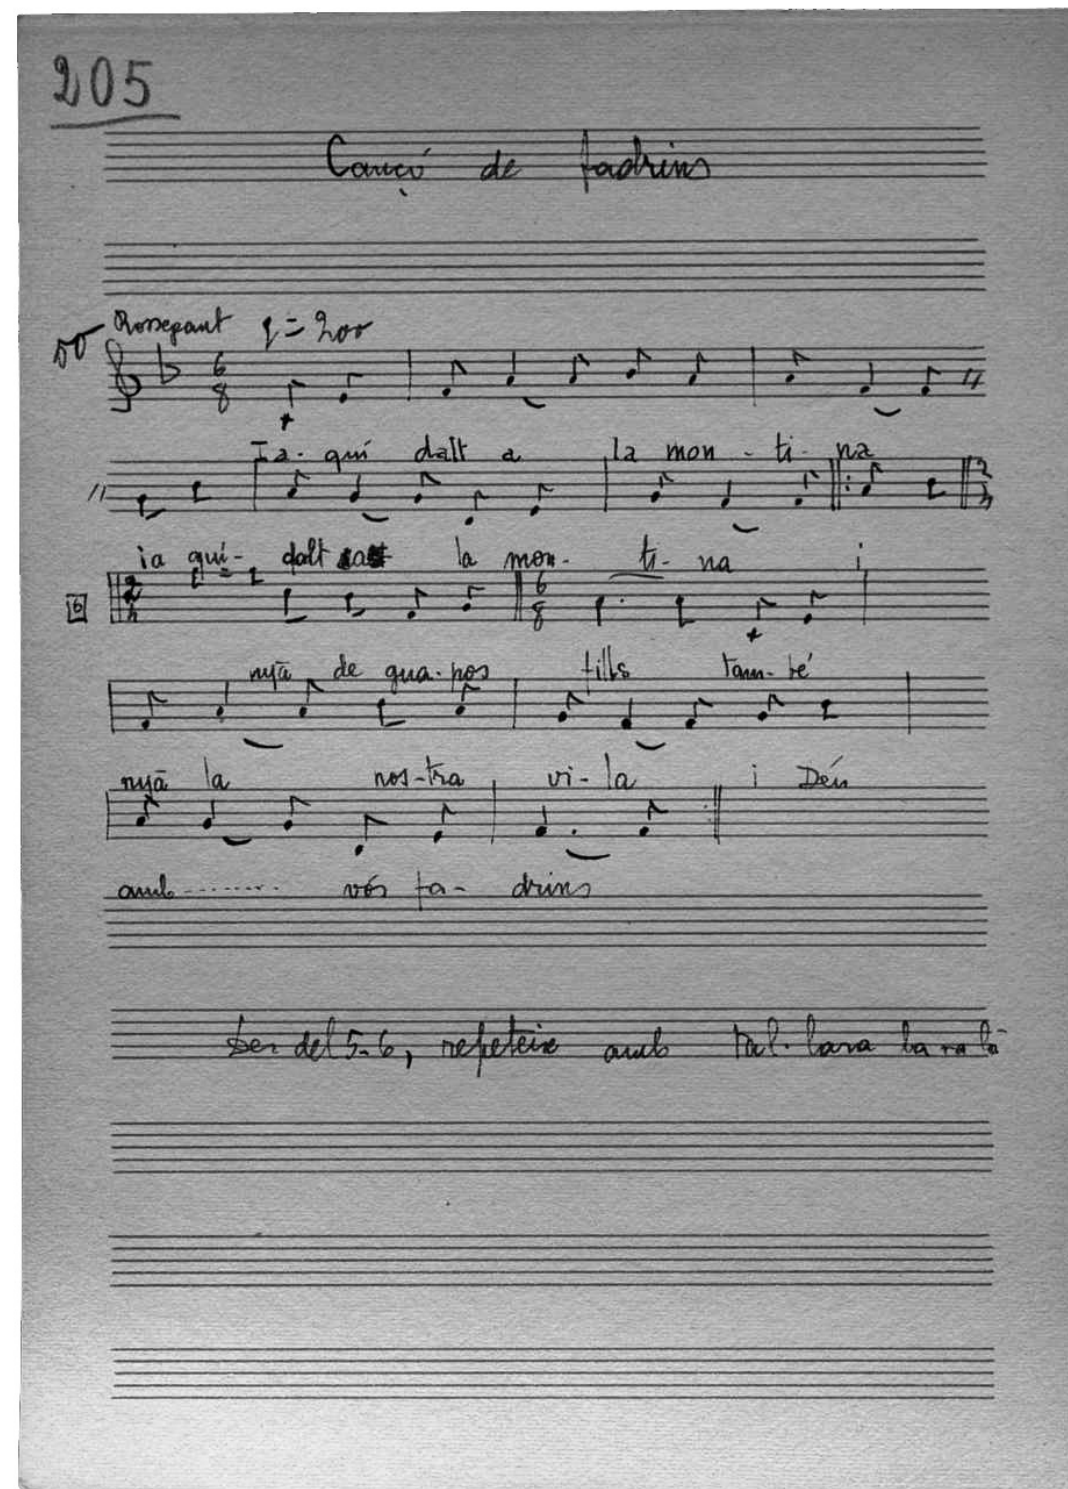 205
Cançó de fadrins
Rossegant = 200
6 8
Ia- quí dalt a la mon - ti - na
ia quí- dalt la mon- ti- na i
6 8
nyà de gua-pos fills tam-bé
nyà la nos-tra vi-la i Déu
amb ........ vós fa- drins
Des del 5-6, repeteix amb tal. lara la ra là